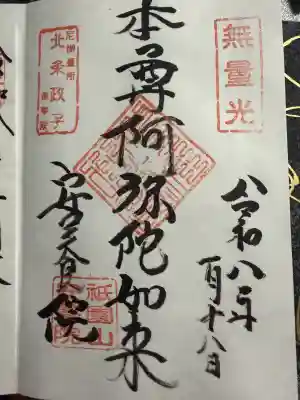 無量光
令和八年
一月十八日
本尊阿弥陀如来
尼御臺所
北条政子
安養院
祇園山